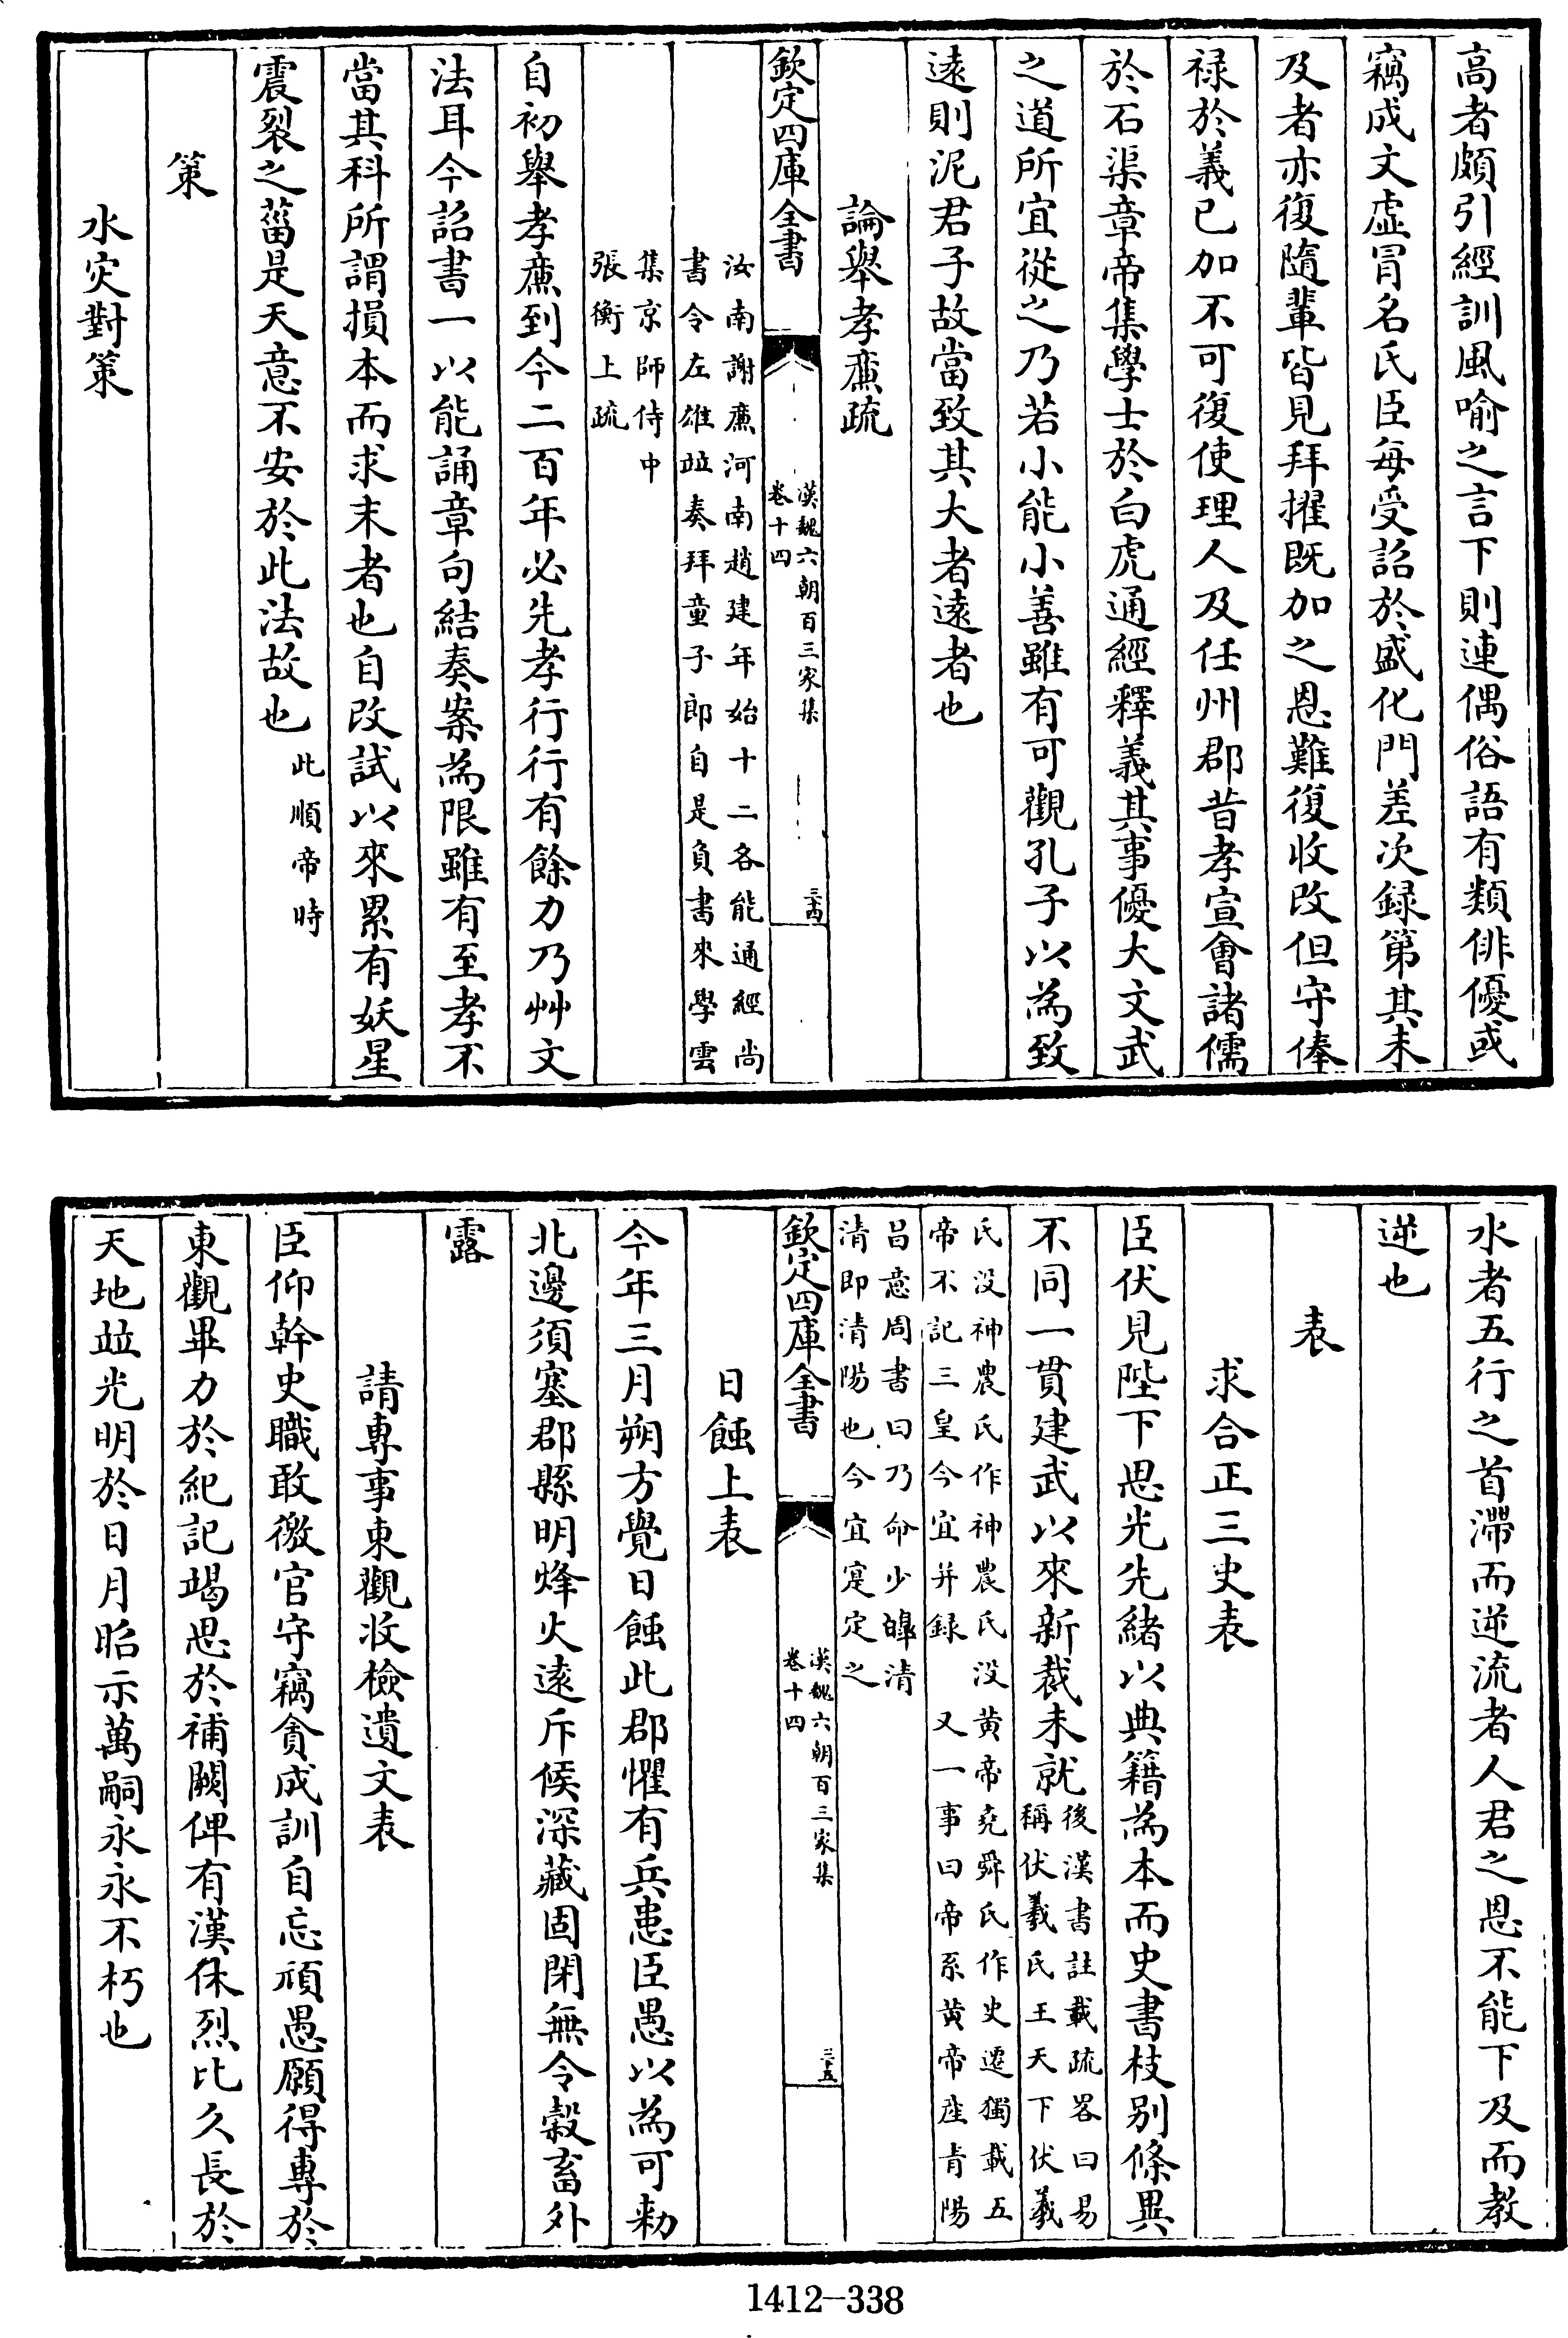 高者頗引經訓風喻之言下則連偶俗語有類俳優或
竊成文虚冒名氏臣每受詔於盛化門差次録第其未
及者亦復隨輩皆見拜擢既加之恩難復收改但守俸
禄於義已加不可復使理人及任州郡昔孝宣會諸儒
於石渠章帝集學士於白虎通經釋義其事優大文武
之道所宜從之乃若小能小善雖有可觀孔子以為致
遠則泥君子故當致其大者遠者也
論舉孝亷疏
欽定四庫全書
漢魏六朝百三家集
卷十四
三十四
汝南謝亷河南趙建年始十二各能通經尚
書令左雄竝奏拜童子郎自是負書來學雲
集京師侍中
張衡上疏
自初舉孝亷到今二百年必先孝行行有餘力乃艸文
法耳今詔書一以能誦章句結奏案為限雖有至孝不
當其科所謂損本而求末者也自改試以來累有妖星
震裂之菑是天意不安於此法故也
此順帝時
策
水灾對策
水者五行之首滯而逆流者人君之恩不能下及而教
逆也
表
求合正三史表
臣伏見陛下思光先緒以典籍為本而史書枝别條異
不同一貫建武以來新裁未就
後漢書註載疏畧曰易
稱伏羲氏王天下伏羲
氏没神農氏作神農氏没黄帝尭舜氏作史遷獨載五
帝不記三皇今宜并録 又一事曰帝系黄帝産青陽
昌意周書曰乃命少皥清
清即清陽也今宜寔定之
欽定四庫全書
漢魏六朝百三家集
卷十四
三十五
日蝕上表
今年三月朔方覺日蝕此郡懼有兵患臣愚以為可勑
北邊須塞郡縣明烽火遠斥候深藏固閉無令穀畜外
露
請專事東觀收檢遺文表
臣仰幹史職敢徼官守竊貪成訓自忘頑愚願得專於
東觀畢力於紀記竭思於補闕俾有漢休烈比久長於
天地竝光明於日月昭示萬嗣永永不朽也
1412—338